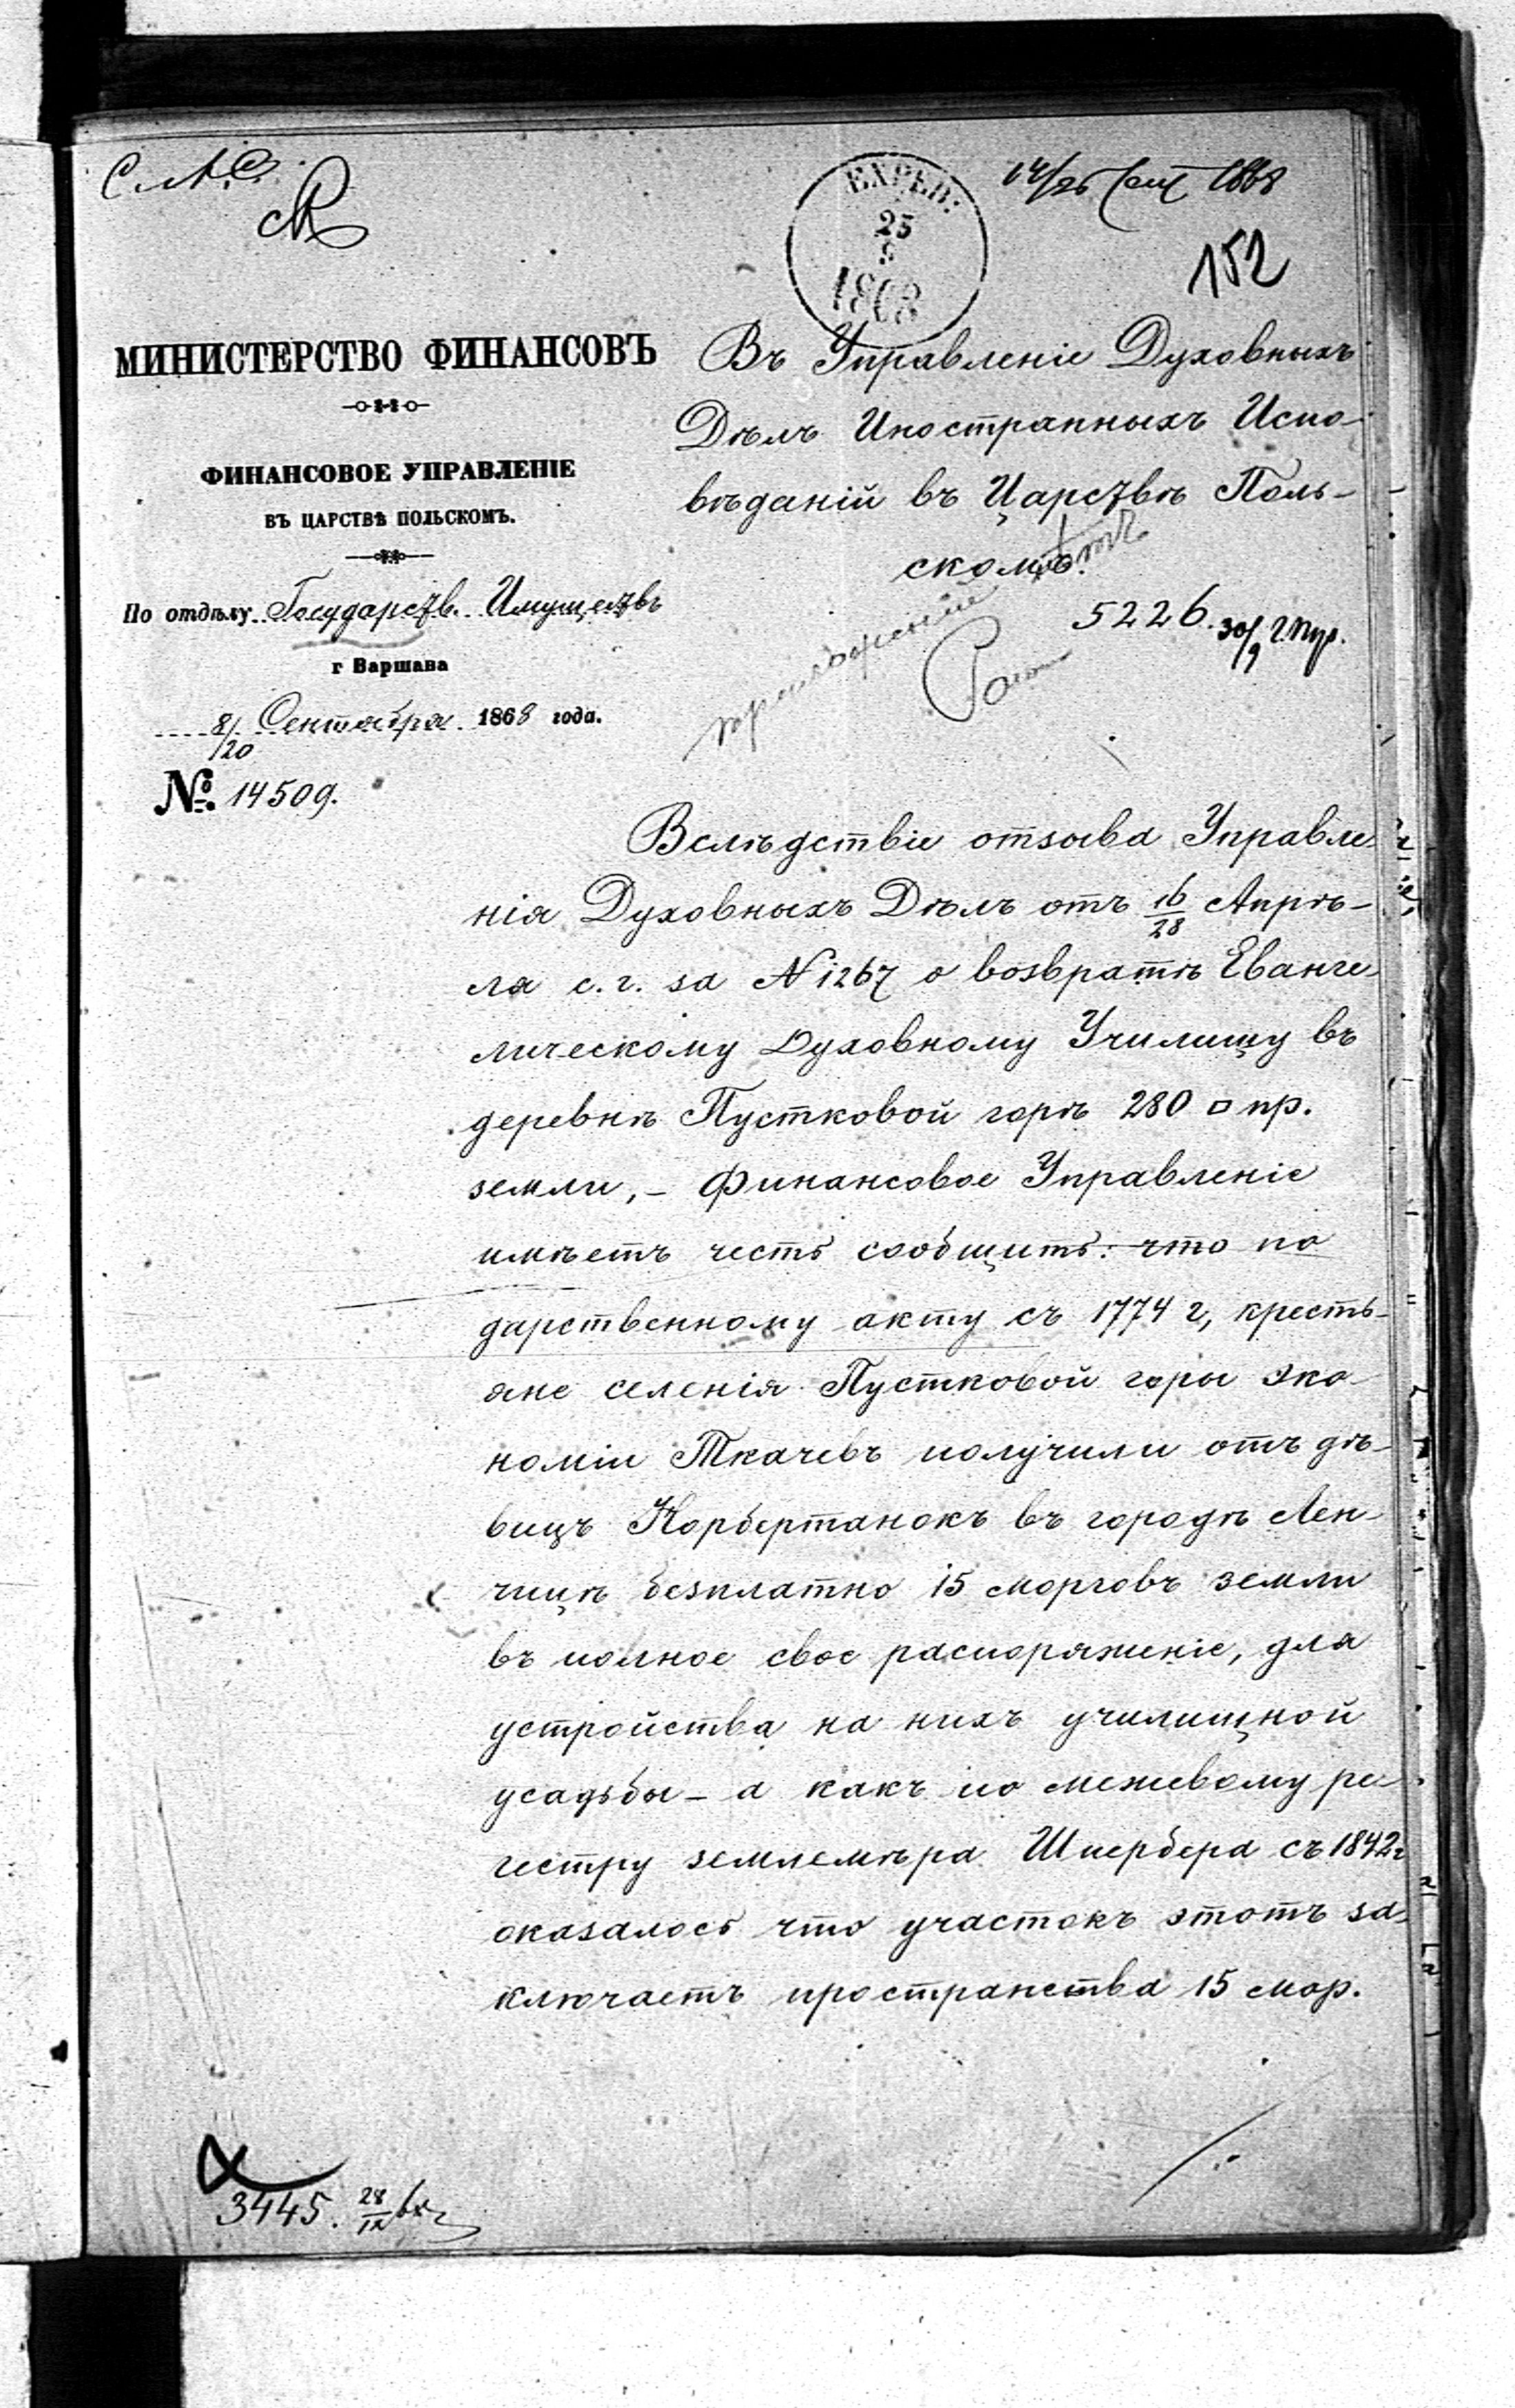 EXPED:
25
9
1868
14/26 Сент 1868
152
МИНИСТЕРСТВО ФИНАНСОВЪ
ФИНАНСОВОЕ УПРАВЛЕНІЕ
ВЪ ЦАРСТВѢ ПОЛЬСКОМЪ.
По отдѣлу Государств. Имуществъ
г Варшава
8/20 Сентября 1868 года.
№ 14509.
Въ Управленіе Духовныхъ
Дѣлъ Иностранныхъ Испо-
вѣданій въ Царствѣ Поль-
скомъ.
5226. 30/9
Вслѣдствіе отзыва Управле-
нія Духовныхъ Дѣлъ отъ 16/28 Апрѣ-
ля с. г. за N 1267 о возвратѣ Еванге-
лическому Духовному Училищу въ
деревнѣ Пустковой горѣ 280 □ пр.
земли, – Финансовое Управленіе
имѣетъ честь сообщить: что по
дарственному акту съ 1774 г, кресть-
яне селенія Пустковой горы эко-
номіи Ткачевъ получили отъ дѣ-
вицъ Норбертанокъ въ городѣ Лен-
чицѣ безплатно 15 морговъ земли
въ полное свое распоряженіе, для
устройства на нихъ училищной
усадьбы – а какъ по межевому ре-
гестру землемѣра Шпербера съ 1842 г
оказалось что участокъ этотъ за-
ключаетъ пространства 15 мор.
3445. 28/12